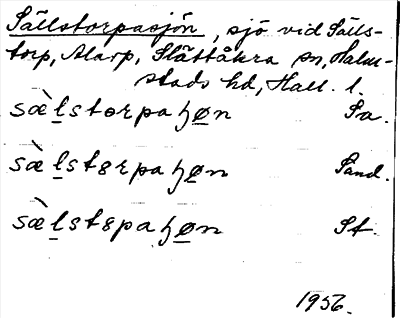 Sällstorpasjön, sjö vid Sälls-
torp, Alarp, Slättåkra sn, Halm-
stads hd, Hall. l.
sæ̀lstorpaɧøn Sa.
sæ̀lstɞrpaɧøn Sand.
sæ̀lstɞpaɧøn St.
1956.